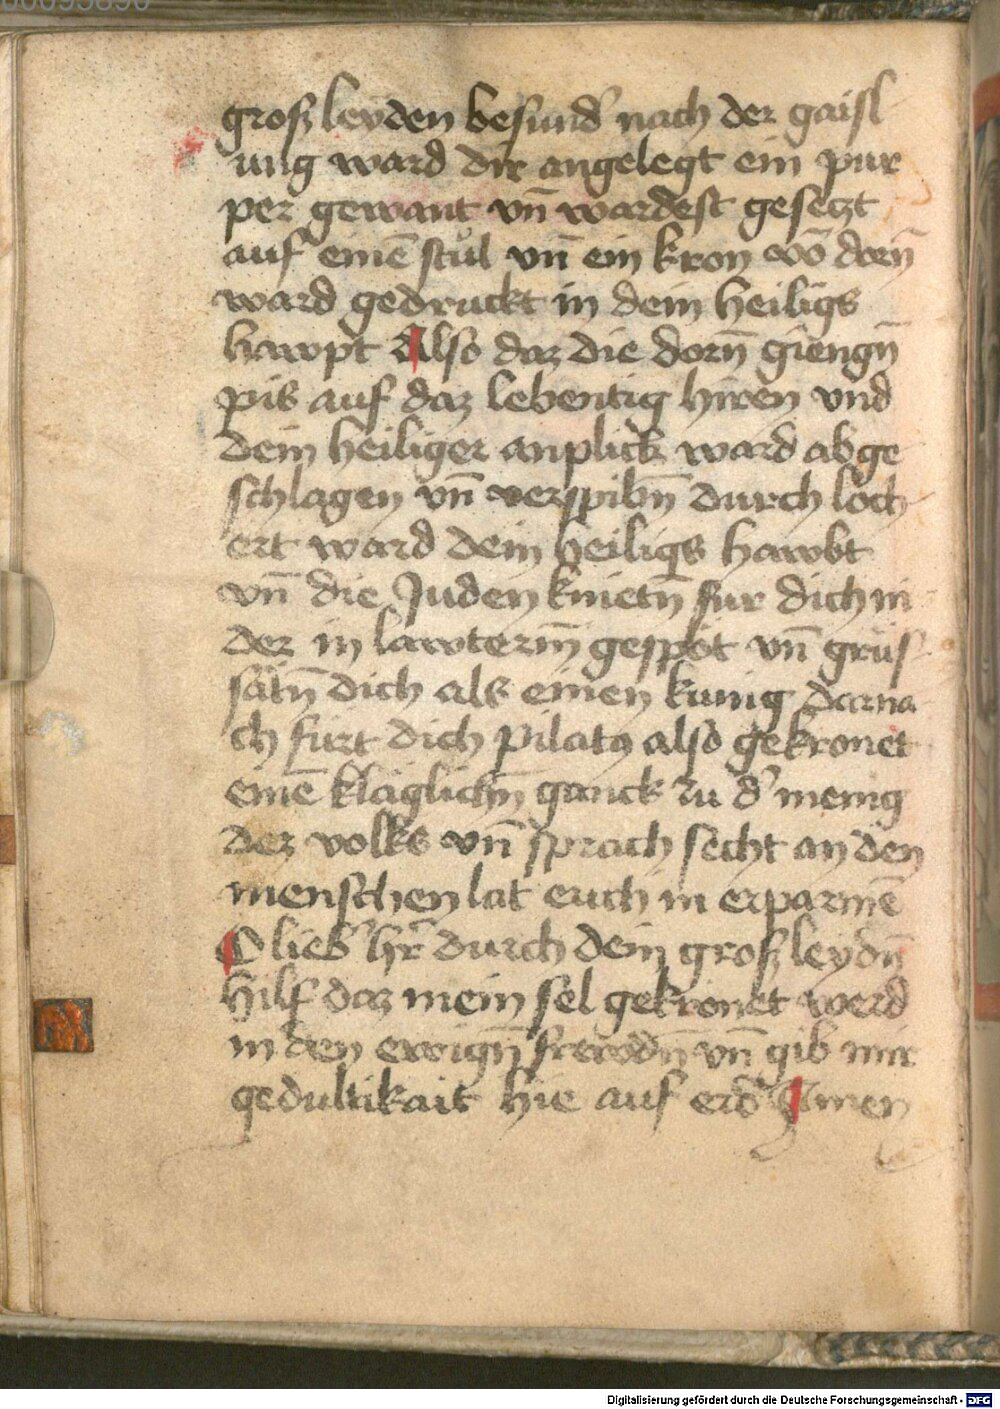 00095890
groß leyden besund' nach der gaisl
ung ward dir angelegt ein pur
per gewant vn̄ wardest geseczt
auf einē stůl vn̄ ein kron vō dorn̄
ward gedruckt in dein heiligs
hawpt Also daz die dorn̄ giengn̄
pis auf daz lebentig hiren vnd
dein heiliger anplick ward abge
schlagen vn̄ verspibn̄ durch loch
ert ward dein heiligs hawbt
vn̄ die Juden knietn̄ fur dich ni
der in lawterm̄ gespöt vn̄ grüs
satn̄ dich als einen kunig darna
ch fürt dich pilatꝰ also gekronet
einē kläglichn̄ ganck zu d' menig
dez volks vn̄ sprach secht an den
menschen lat euch in erparmē
O lieb' hr̄ durch dein groß leydn̄
hilf daz mein sel gekronet werd
in den ewign̄ frewdn̄ vn̄ gib mir
gedultikait hie auf erd' Amen
Digitalisierung gefördert durch die Deutsche Forschungsgemeinschaft - DFG